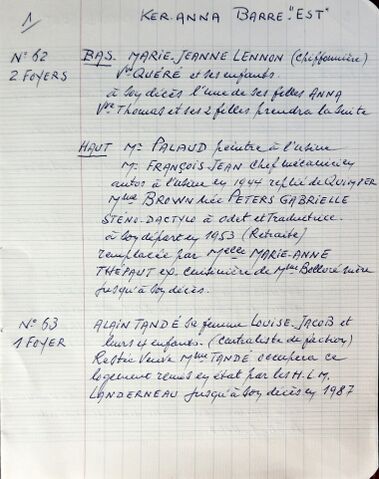 1 KER-ANNA BARRE: "EST"
N° 62 BAS. MARIE-JEANNE LENNON (Chiffonnière)
2 FOYERS Vve QUÉRÉ et ses enfants.
à son décès l'une de ses filles ANNA
Vve Thomas et ses 2 filles prendra la suite
HAUT Mr PALAUD peintre à l'usine
Mr FRANÇOIS-JEAN Chef mécanicien
autos à l'usine en 1944 replié de QUIMPER
Mme BROWN née PETERS GABRIELLE
STÉNO-DACTYLO à Odet et Traductrice.
à son départ en 1953 (Retraite)
remplacée par Melle MARIE-ANNE
THEPAUT ex. Cuisinière de Mme Bolloré mère
jusqu'à son décès.
N° 63 ALAIN TANDÉ sa femme LOUISE JACOB et
1 FOYER leurs 4 enfants. (Centraliste de faction)
Restée Veuve Mme TANDÉ occupera ce
logement remis en état par les H.L.M.
LANDERNEAU jusqu'à son décès en 1987